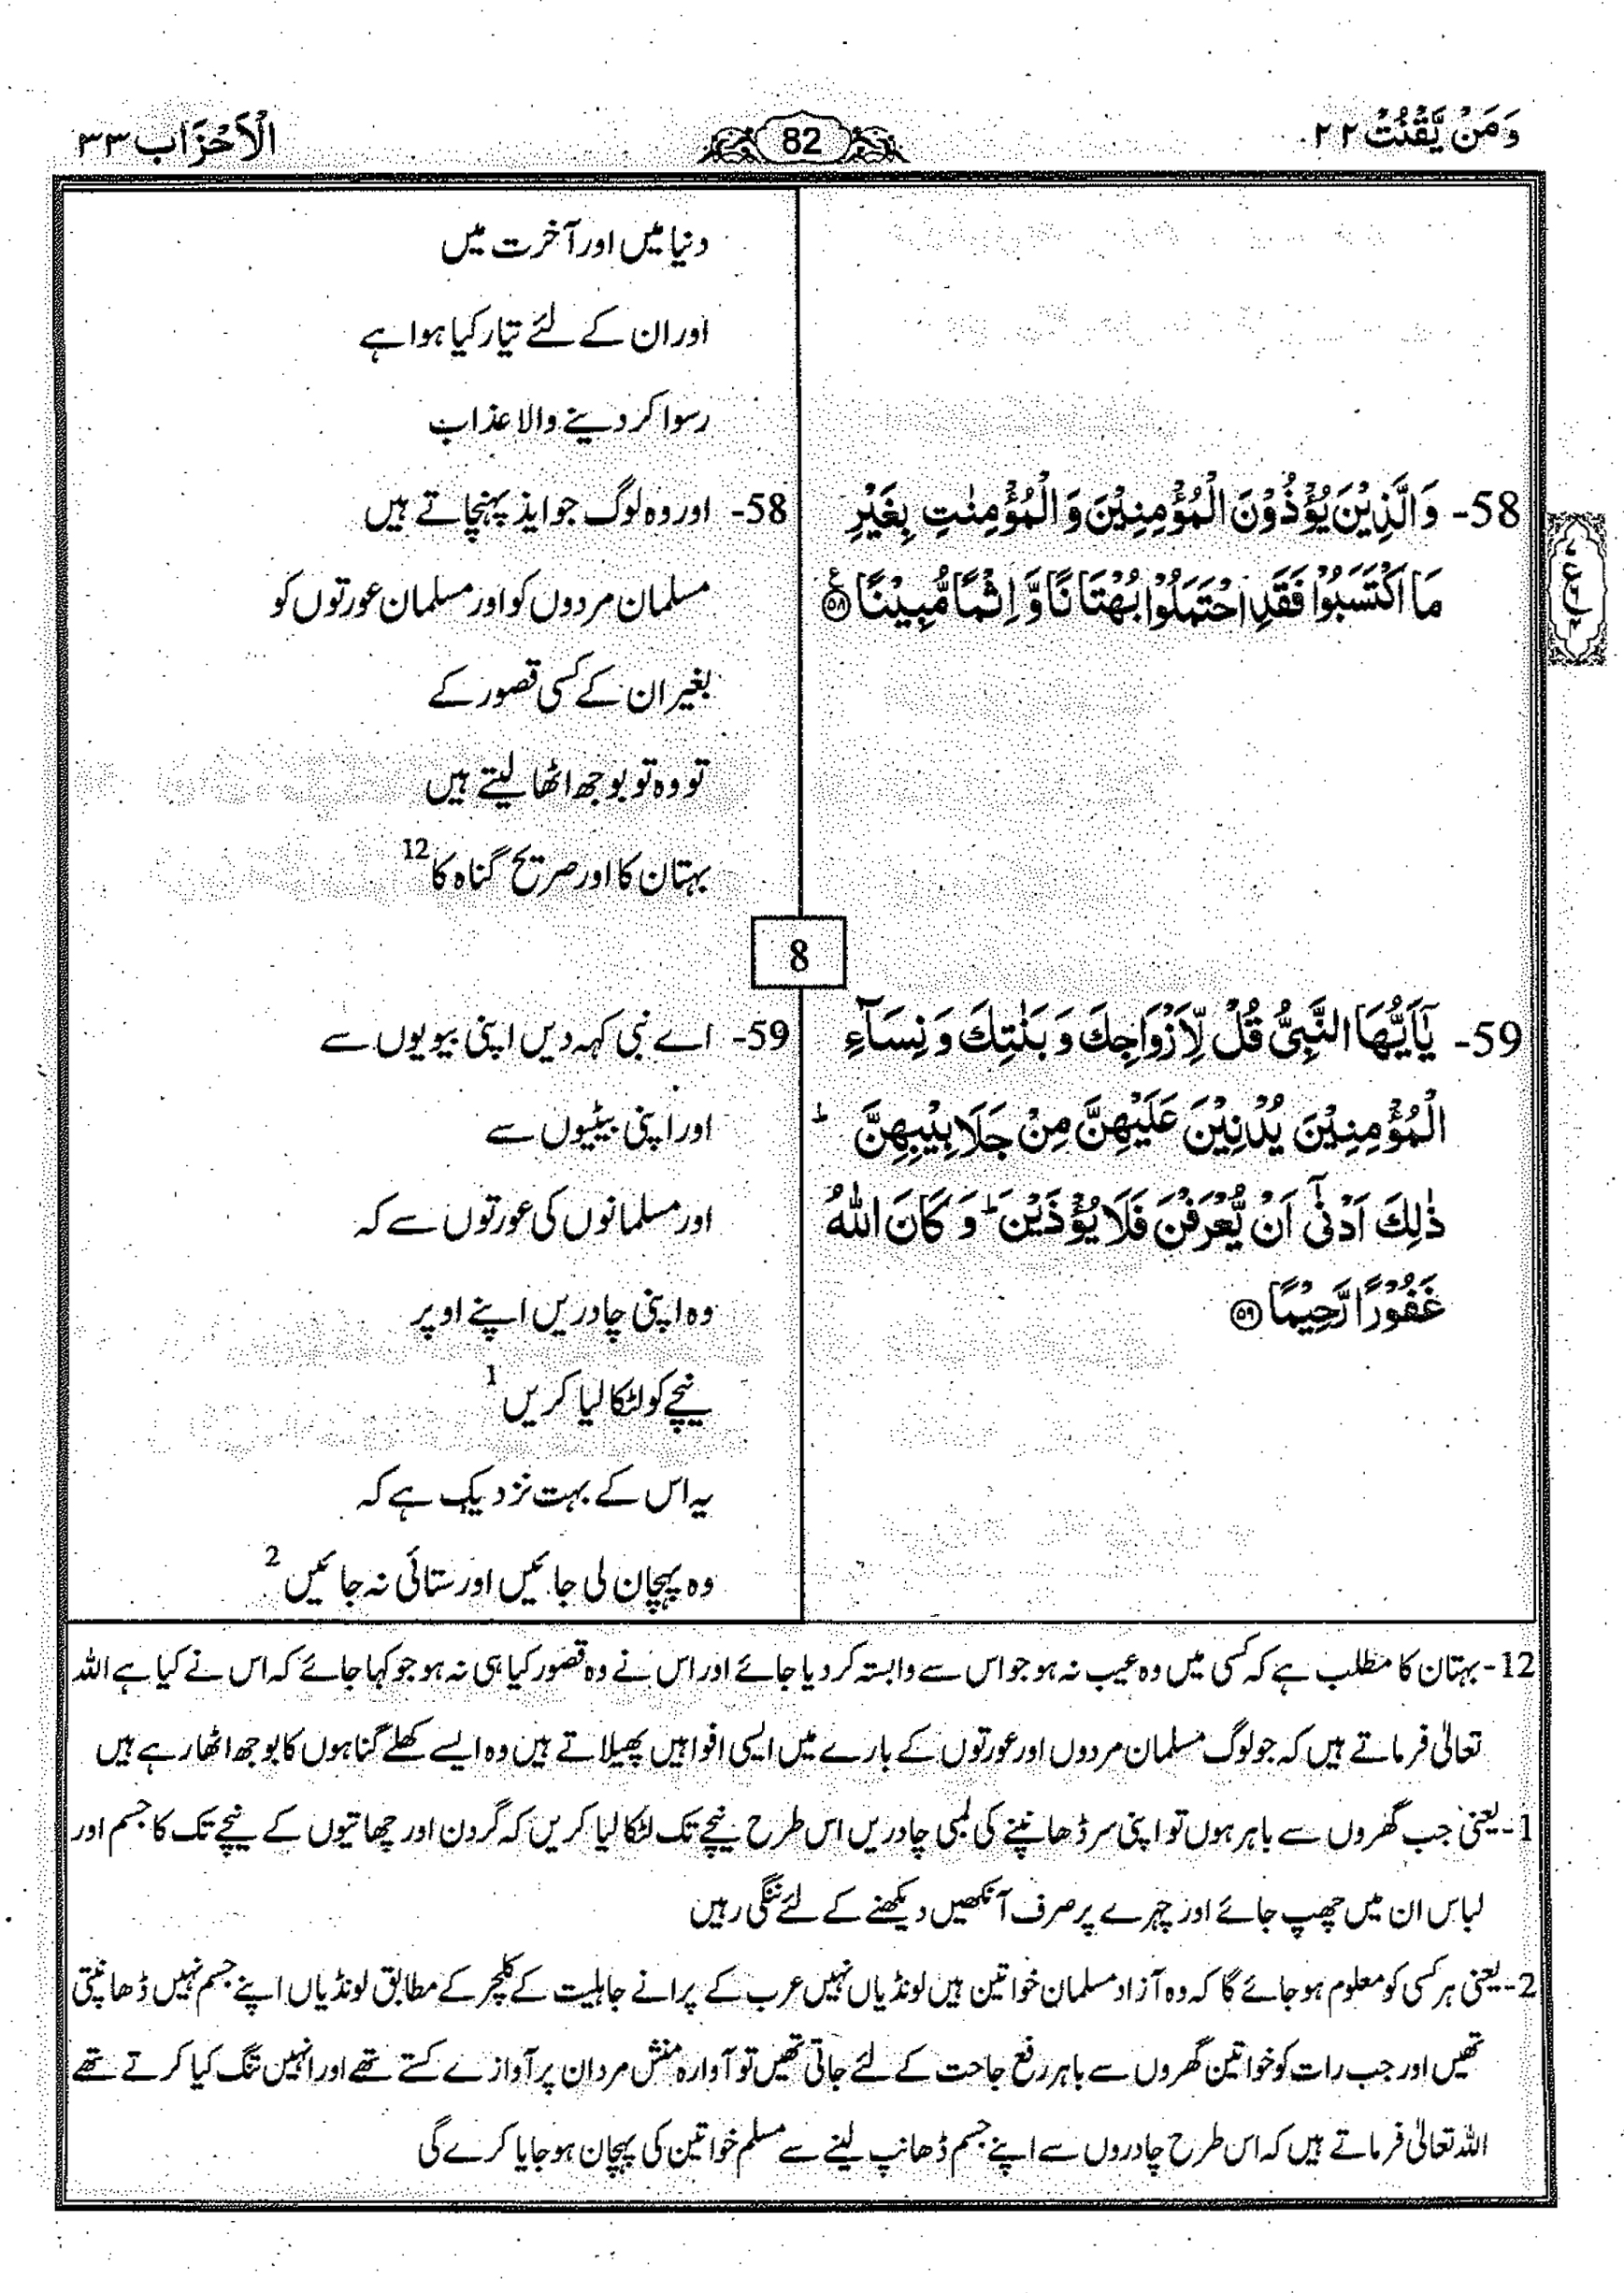 وَمَنْ يَّقْنُتْ ٢٢
82
اَلْاَحْزَاب ٣٣
دنیا میں اور آخرت میں
اور ان کے لئے تیار کیا ہوا ہے
رسوا کر دینے والا عذاب
58- وَالَّذِيْنَ يُؤْذُوْنَ الْمُؤْمِنِيْنَ وَالْمُؤْمِنٰتِ بِغَيْرِ
مَا اكْتَسَبُوْا فَقَدِ احْتَمَلُوْا بُهْتَانًا وَّاِثْمًا مُّبِيْنًا ﴿۵۸﴾
58- اور وہ لوگ جو ایذ پہنچاتے ہیں
مسلمان مردوں کو اور مسلمان عورتوں کو
بغیر ان کے کسی قصور کے
تو وہ تو بوجھ اٹھا لیتے ہیں
بہتان کا اور صریح گناہ کا 12
8
59- يٰٓاَيُّهَا النَّبِىُّ قُلْ لِّاَزْوَاجِكَ وَبَنٰتِكَ وَنِسَآءِ
الْمُؤْمِنِيْنَ يُدْنِيْنَ عَلَيْهِنَّ مِنْ جَلَابِيْبِهِنَّ ؕ
ذٰلِكَ اَدْنٰٓى اَنْ يُّعْرَفْنَ فَلَا يُؤْذَيْنَ ؕ وَكَانَ اللّٰهُ
غَفُوْرًا رَّحِيْمًا ﴿۵۹﴾
59- اے نبی کہہ دیں اپنی بیویوں سے
اور اپنی بیٹیوں سے
اور مسلمانوں کی عورتوں سے کہ
وہ اپنی چادریں اپنے اوپر
نیچے کو لٹکا لیا کریں 1
یہ اس کے بہت نزدیک ہے کہ
وہ پہچان لی جائیں اور ستائی نہ جائیں 2
12- بہتان کا مطلب ہے کہ کسی میں وہ عیب نہ ہو جو اس سے وابستہ کر دیا جائے اور اس نے وہ قصور کیا ہی نہ ہو جو کہا جائے کہ اس نے کیا ہے اللہ
تعالیٰ فرماتے ہیں کہ جو لوگ مسلمان مردوں اور عورتوں کے بارے میں ایسی افواہیں پھیلاتے ہیں وہ ایسے کھلے گناہوں کا بوجھ اٹھا رہے ہیں
1- یعنی جب گھروں سے باہر ہوں تو اپنی سر ڈھانپنے کی لمبی چادریں اس طرح نیچے تک لٹکا لیا کریں کہ گردن اور چھاتیوں کے نیچے تک کا جسم اور
لباس ان میں چھپ جائے اور چہرے پر صرف آنکھیں دیکھنے کے لئے ننگی رہیں
2- یعنی ہر کسی کو معلوم ہو جائے گا کہ وہ آزاد مسلمان خواتین ہیں لونڈیاں نہیں عرب کے پرانے جاہلیت کے کلچر کے مطابق لونڈیاں اپنے جسم نہیں ڈھانپتی
تھیں اور جب رات کو خواتین گھروں سے باہر رفع حاجت کے لئے جاتی تھیں تو آوارہ منش مرد ان پر آوازے کستے تھے اور انہیں تنگ کیا کرتے تھے
اللہ تعالیٰ فرماتے ہیں کہ اس طرح چادروں سے اپنے جسم ڈھانپ لینے سے مسلم خواتین کی پہچان ہو جایا کرے گی